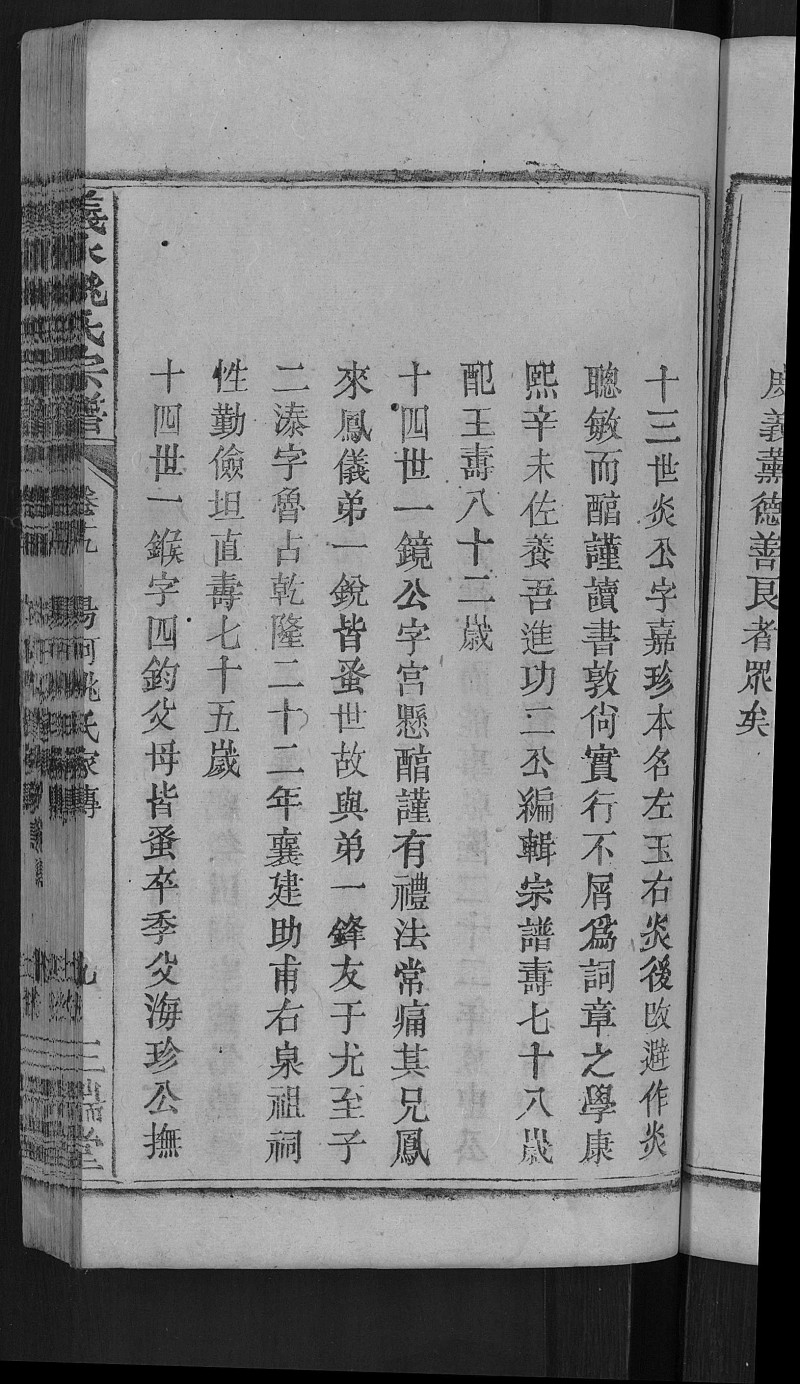 庶義薰德善良者眾矣
十三世炎公字嘉珍本名左玉右炎後改避作炎
聰敏而醕謹讀書敦尙實行不屑爲詞章之學康
熙辛未佐養吾進功二公編輯宗譜壽七十八歲
配王壽八十二歲
十四世一鏡公字宮懸醕謹有禮法常痛其兄鳳
來鳳儀弟一銳皆蚤世故與弟一鋒友于尤至子
二溙字魯占乾隆二十二年襄建助甫右泉祖祠
性勤儉坦直壽七十五歲
十四世一鍭字四鈞父母皆蚤卒季父海珍公撫
義水姚氏宗譜 卷 姚氏家傳 九